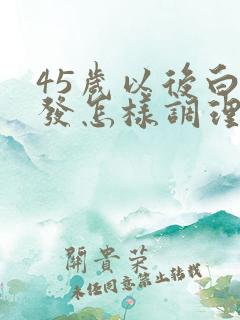 45歲以後白
發怎樣調理
開貴榮
未任同意禁止轉載